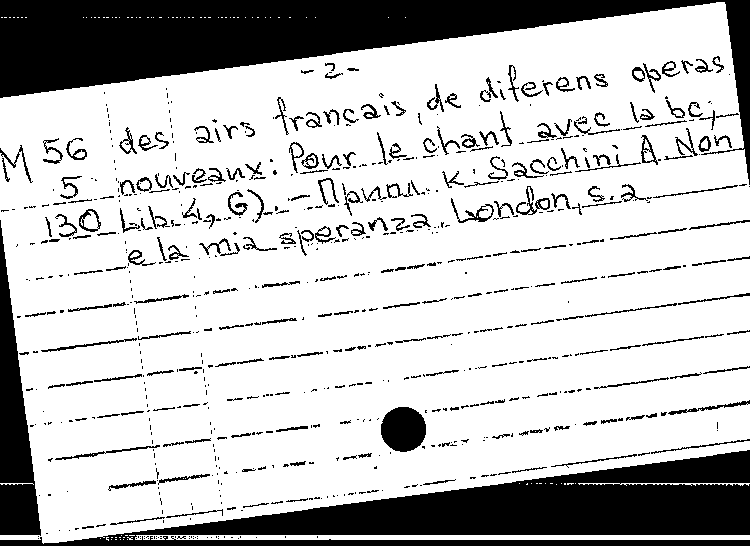 -2-
M 56 des airs français, de diferens operas
5 nouveaux: Pour le chant avec la bc;
130 Lib. 4, 6). - Припл. к: Sacchini A. Non
e la mia speranza. London, s.a.